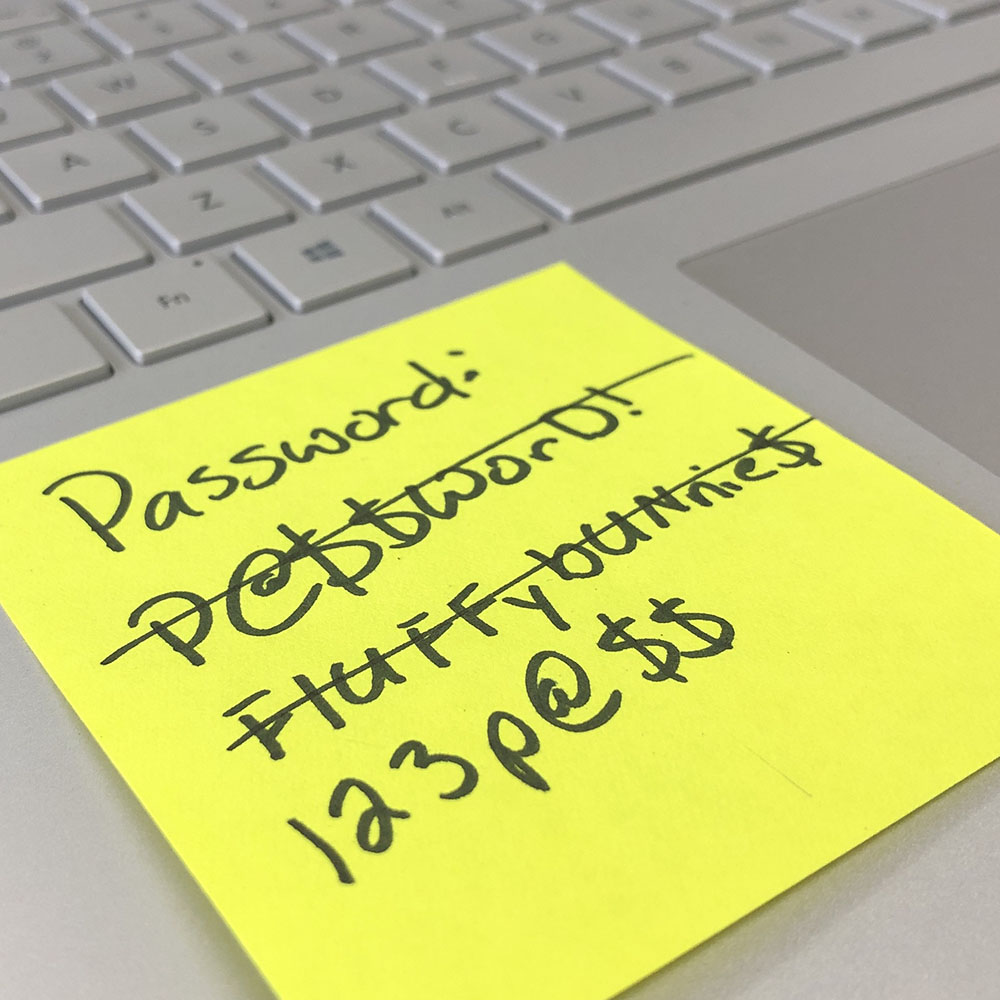 Q W E R T
A S D F G
Z X C V B N
Fn Alt
Password:
P@$$worD!
FluFFybUNnie$
123p@$$